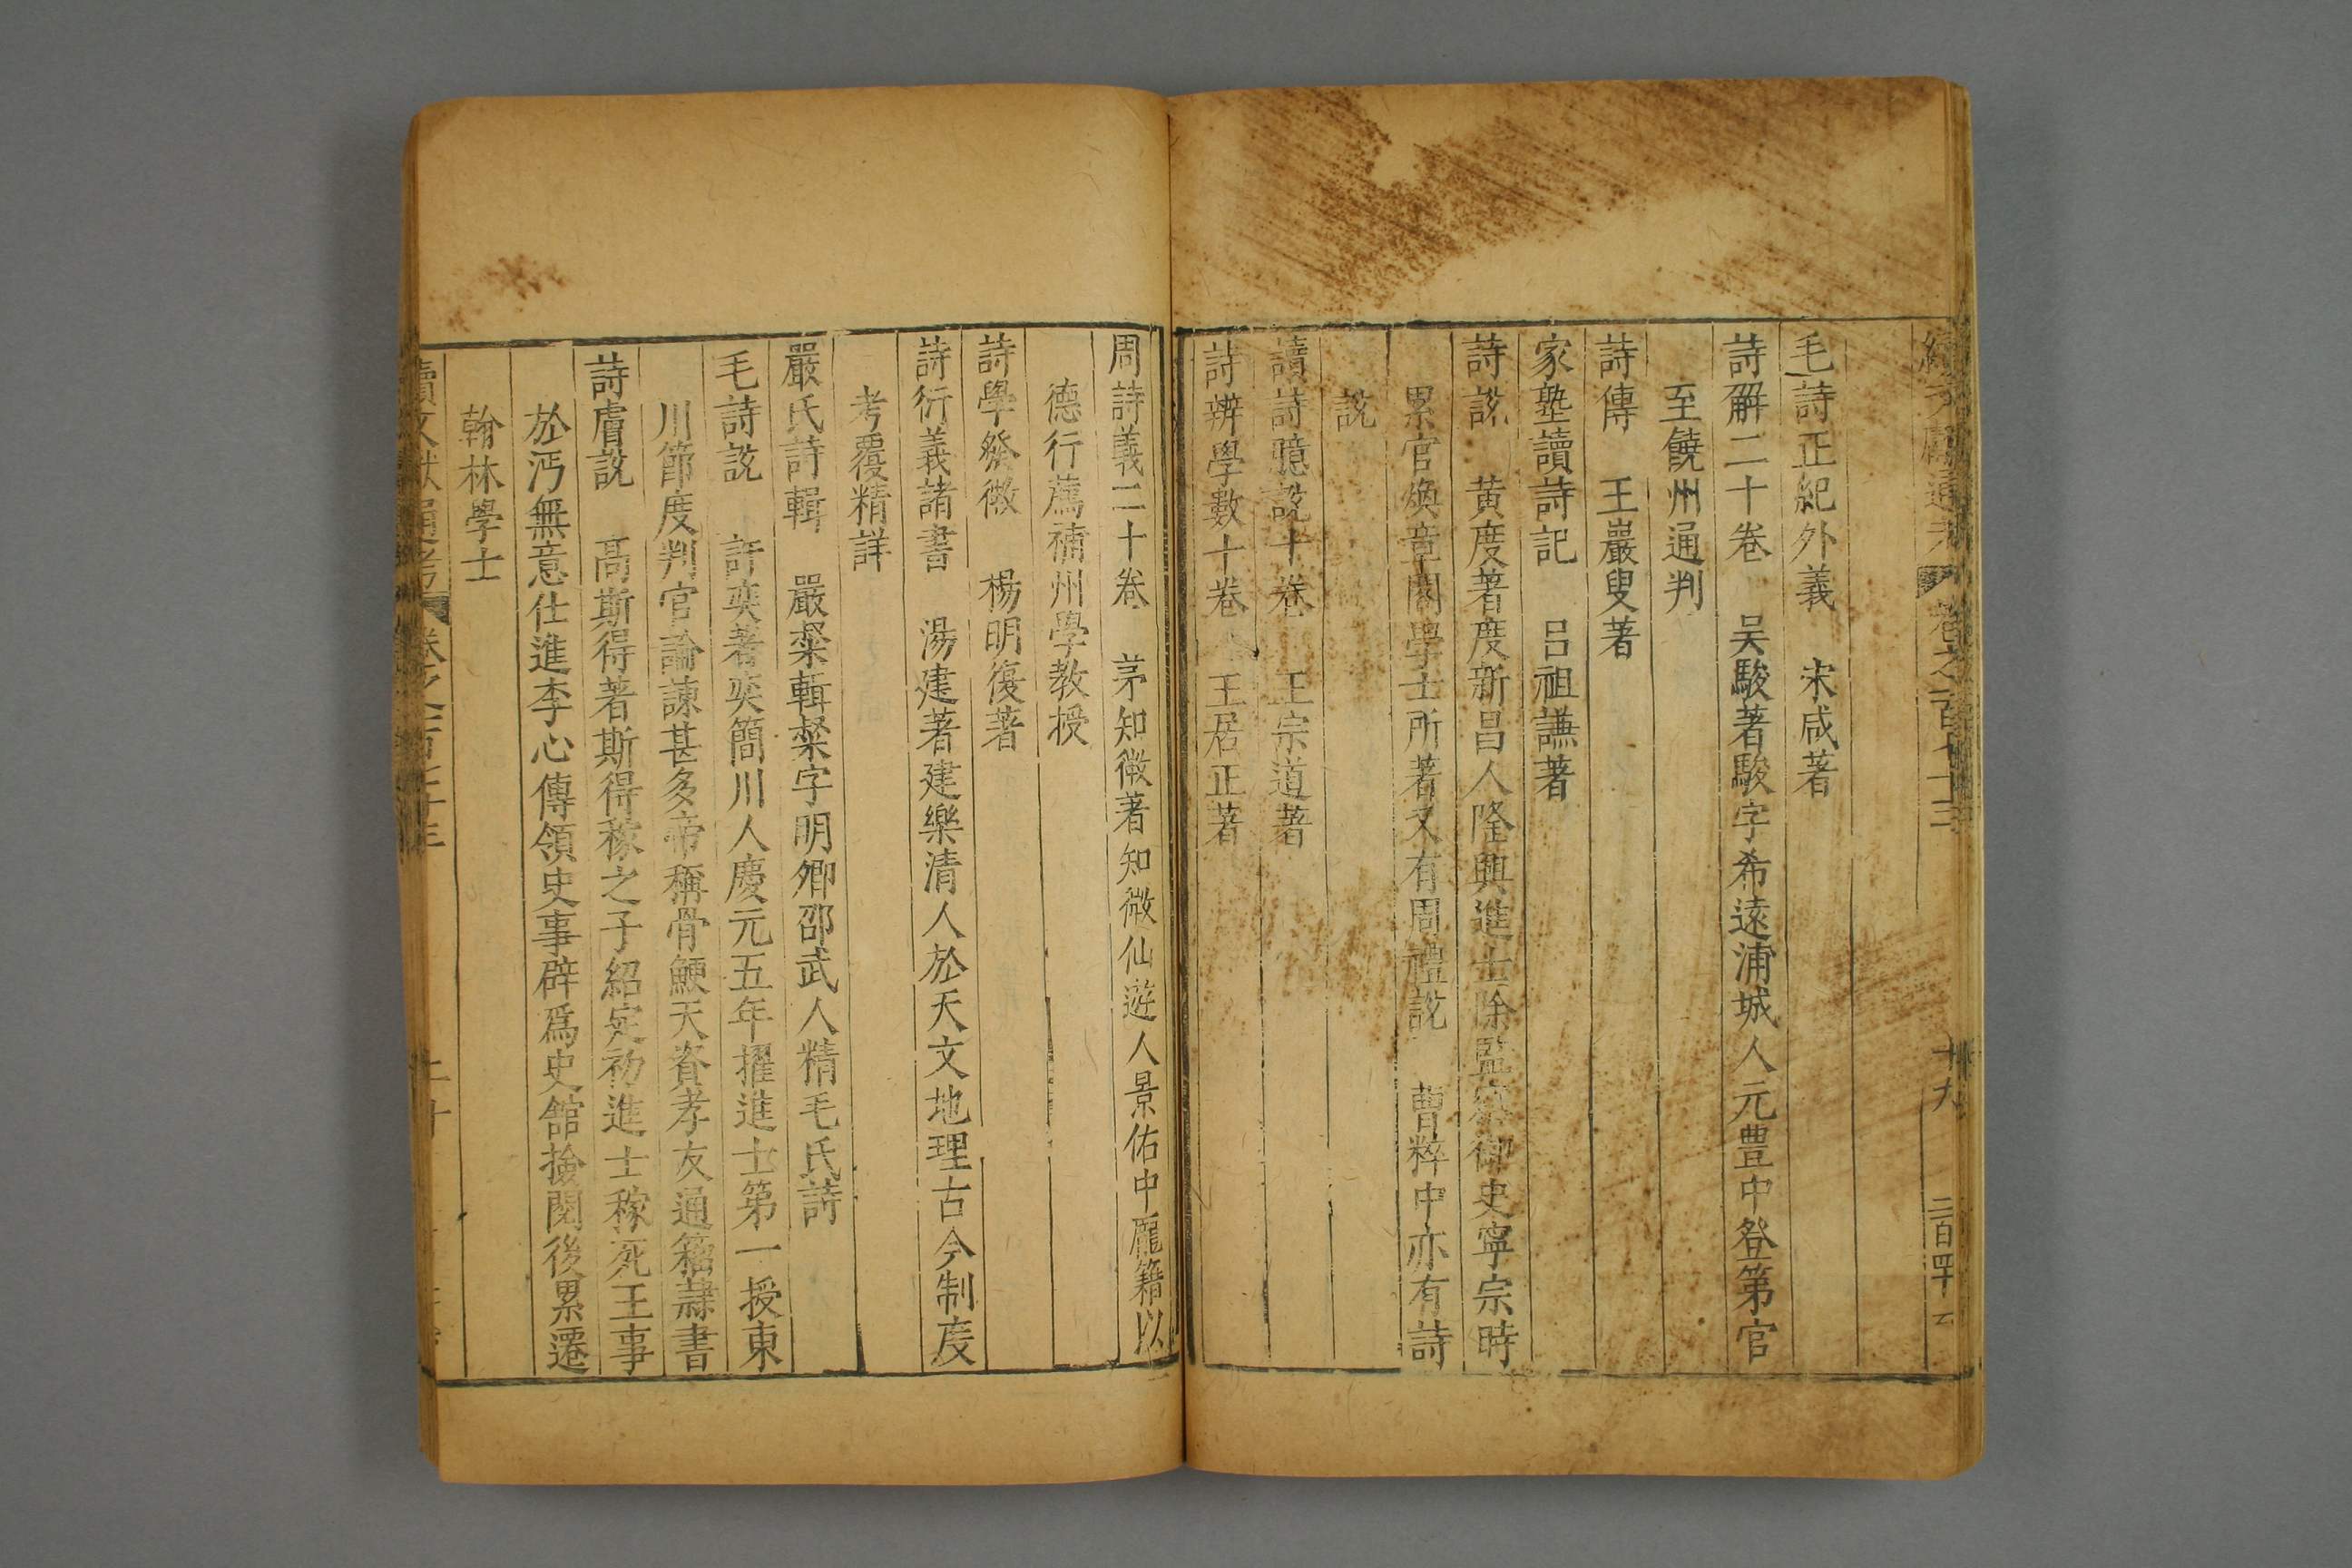 續文獻通考 卷之一百七十三 十九
毛詩正紀外義 宋咸著
詩解二十卷 吴駿著駿字希遠浦城人元豊中登第官
至饒州通判
詩傳 王巖叟著
家塾讀詩記 呂祖謙著
詩說 黄度著度新昌人隆興進士除監察御史寧宗時
累官煥章閣學士所著又有周禮說 曹粹中亦有詩
說
讀詩臆說十卷 王宗道著
詩辨學數十卷 王居正著
周詩義二十卷 茅知微著知微仙遊人景佑中龎籍以
德行薦 州學教授
詩學發微 楊明復著
詩衍義諸書 湯建著建樂清人於天文地理古今制度
考覆精詳
嚴氏詩輯 嚴粲輯粲字明卿邵武人精毛氏詩
毛詩說 許奕著奕簡川人慶元五年擢進士第一授東
川節度判官論諫甚多帝稱骨鯁天資孝友通籀隷書
詩膚說 高斯得著斯得稼之子紹定初進士稼死王事
於沔無意仕進李心傳領史事辟爲史舘撿閱後累遷
翰林學士
續文獻通考 卷之一百七十三